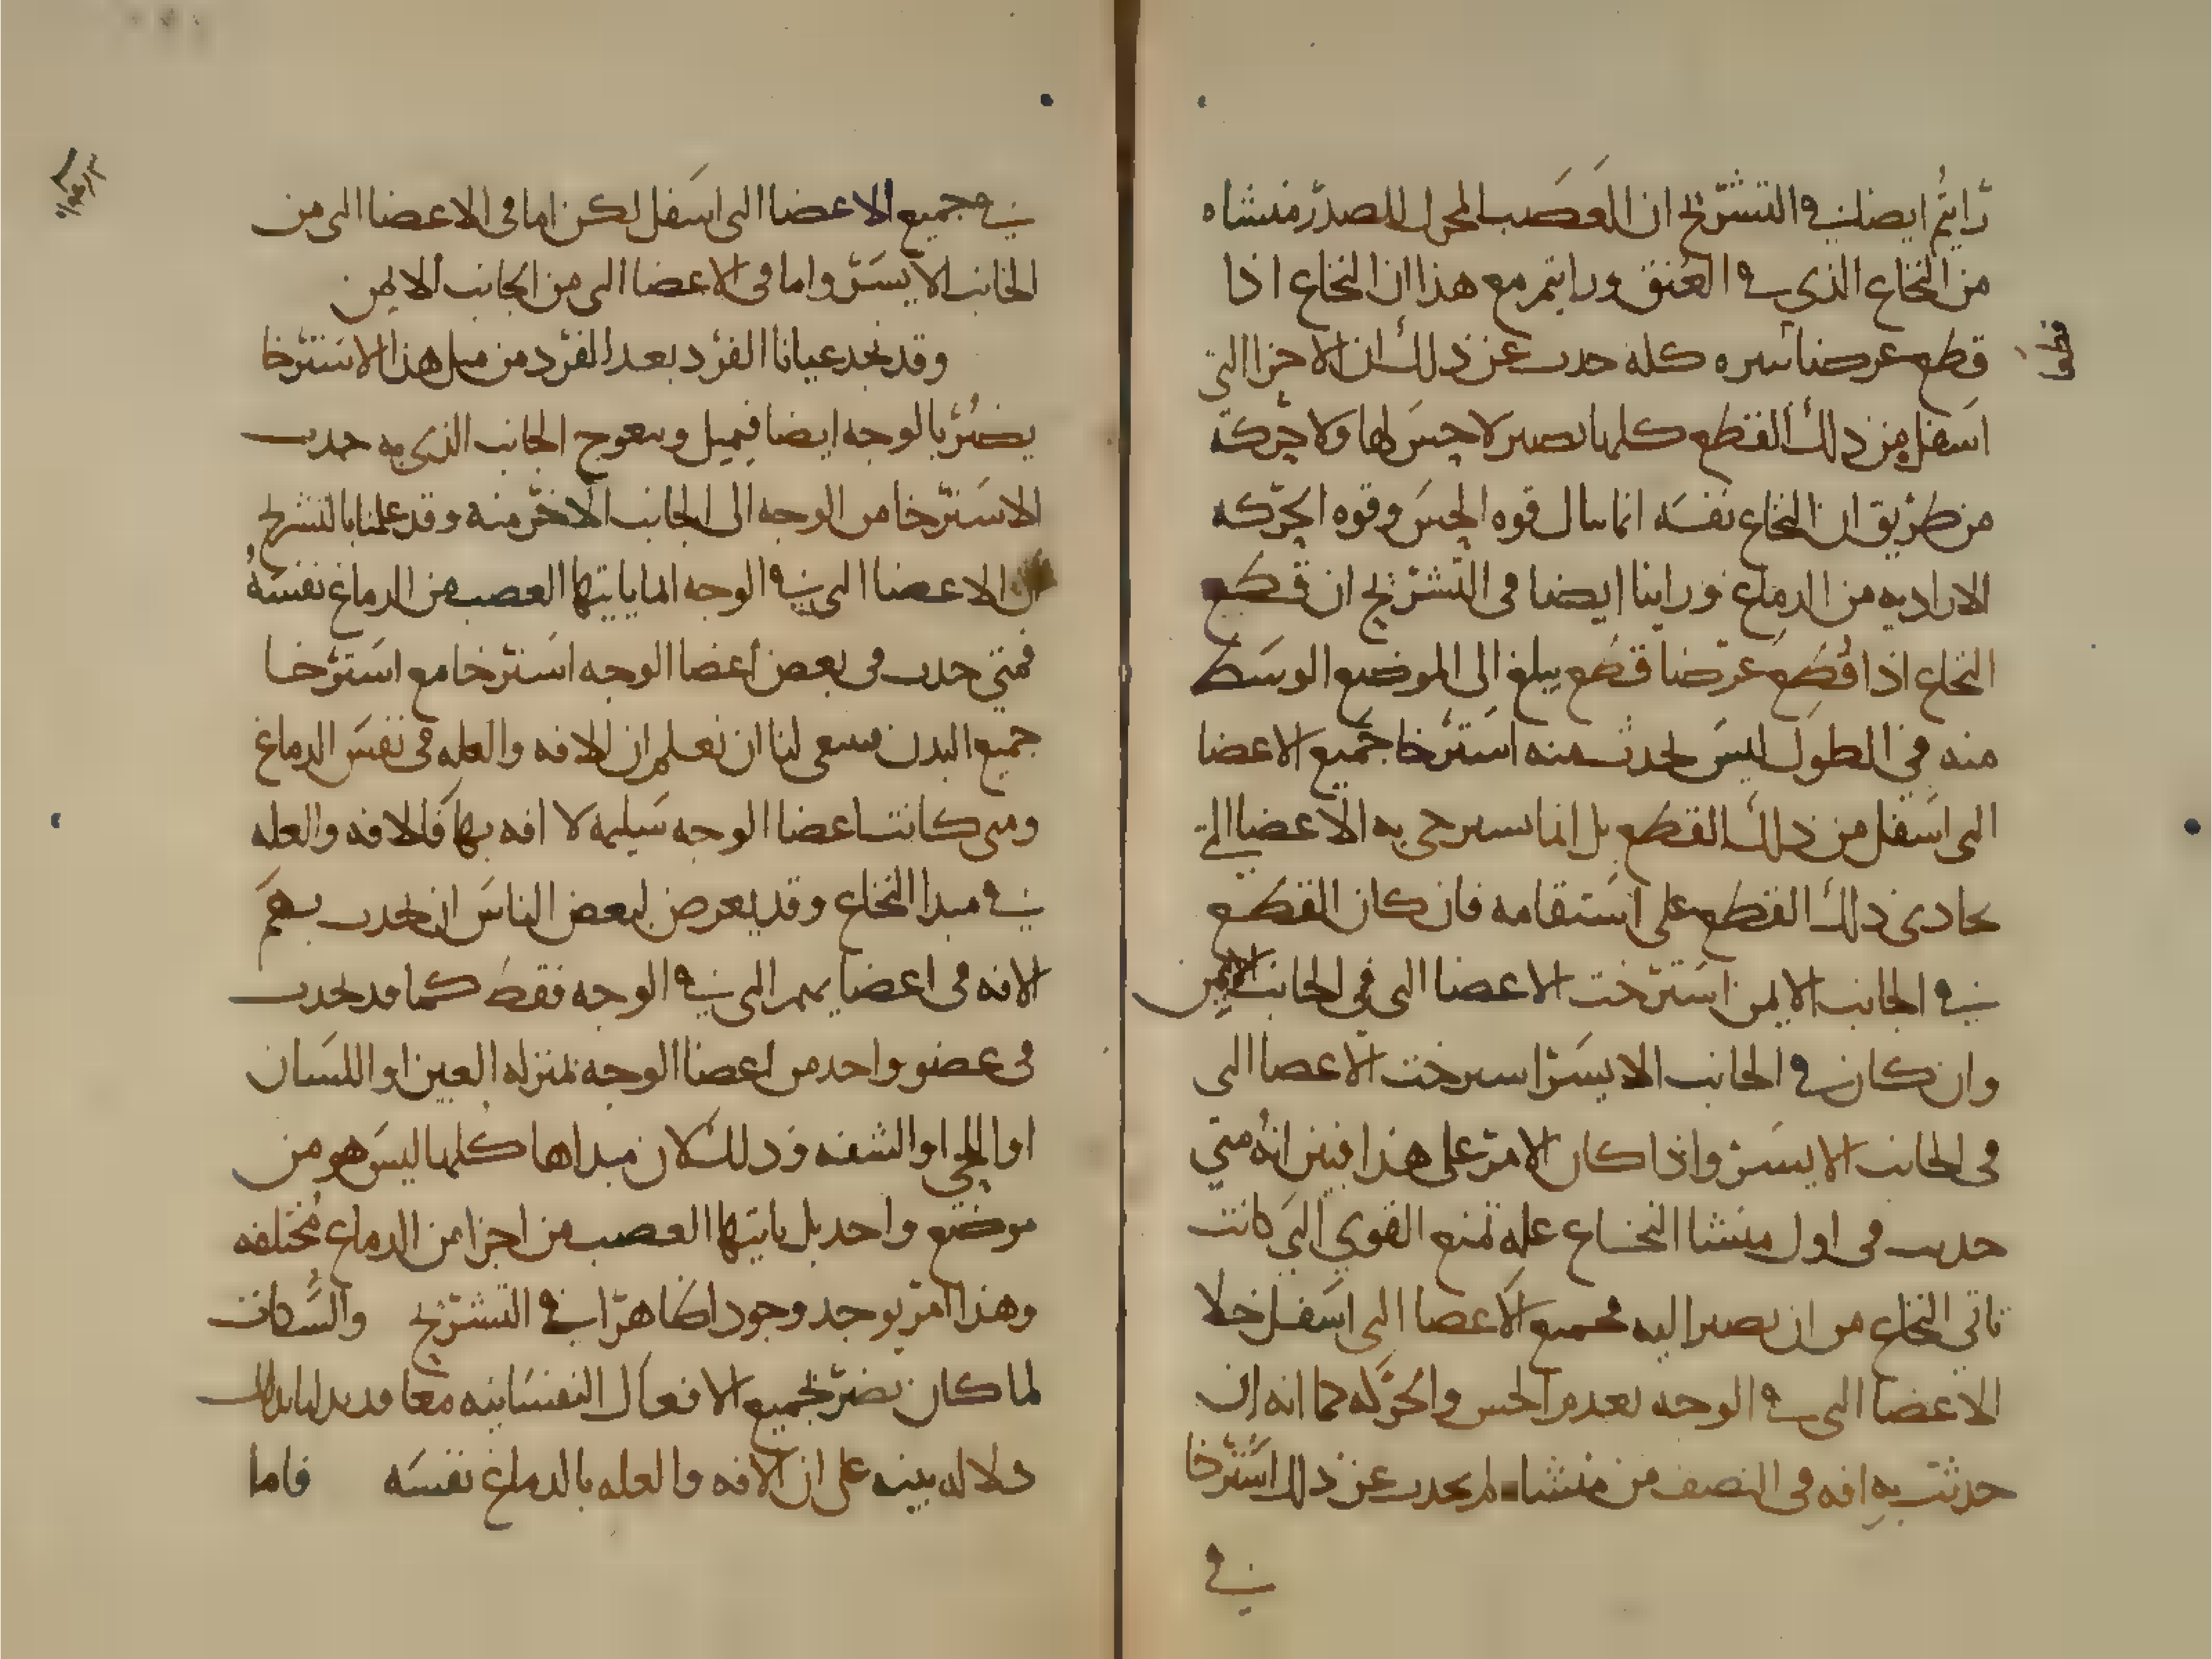 رايتم ايضا في التشريح ان العصب المحرك للصدر منشاه
من النخاع الذي في العنق ورايتم مع هذا ان النخاع اذا
قطع عرضا باسره كله حدث عن ذلك ان الاجزا التي
اسفل من ذلك القطع كلها تصير لا حس لها ولا حركة
من طريق ان النخاع نفسه انما ينال قوه الحس وقوه الحركه
الاراديه من الدماغ وراينا ايضا في التشريح ان قطع
النخاع اذا قطع عرضا قطع يبلغ الى الموضع الوسط
منه في الطول ليس يحدث منه استرخا جميع الاعضا
التي اسفل من ذلك القطع بل انما يسترخي به الاعضا التي
يحاذي ذلك القطع على استقامه فان كان القطع
في الجانب الايمن استرخت الاعضا التي في الجانب الايمن
وان كان في الجانب الايسر استرخت الاعضا التي
في الجانب الايسر واذا كان الامر على هذا فبين انه متي
حدث في اول منشا النخاع عله تمنع القوي التي كانت
تاتي النخاع من ان تصير اليه فجميع الاعضا التي اسفل خلا
الاعضا التي في الوجه يعدم الحس والحركه كما انه ان
حدثت به افه في النصف من منشاه لم يحدث عن ذلك استرخا
في
في جميع الاعضا التي اسفل لكن اما في الاعضا التي من
الجانب الايسر واما في الاعضا التي من الجانب الايمن
وقد نجد عيانا الفرد بعد الفرد من مثل هذا الاسترخا
يضر بالوجه ايضا فيميل ويتعوج الجانب الذي به حدث
الاسترخا من الوجه الى الجانب الاخر منه وقد علمنا بالتشريح
ان الاعضا التي في الوجه انما ياتيها العصب من الدماغ نفسه
فمتي حدث في بعض اعضا الوجه استرخا مع استرخا
جميع البدن فينبغي لنا ان نعلم ان الافه والعله في نفس الدماغ
ومتى كانت اعضا الوجه سليمه لا افه بها فالافه والعله
في مبدا النخاع وقد يعرض لبعض الناس ان يحدث بهم
الافه في اعضايهم التي في الوجه فقط كما قد يحدث
في عضو واحد من اعضا الوجه بمنزله العين او اللسان
او اللحي او الشفه وذلك لان مبداها كلها ليس هو من
موضع واحد بل ياتيها العصب من اجزا من الدماغ مختلفه
وهذا امر يوجد وجودا ظاهرا في التشريح والسكات
لما كان يضر بجميع الافعال النفسانيه معا قد يدلنا بذلك
دلاله بينه على ان الافه والعله بالدماغ نفسه فاما